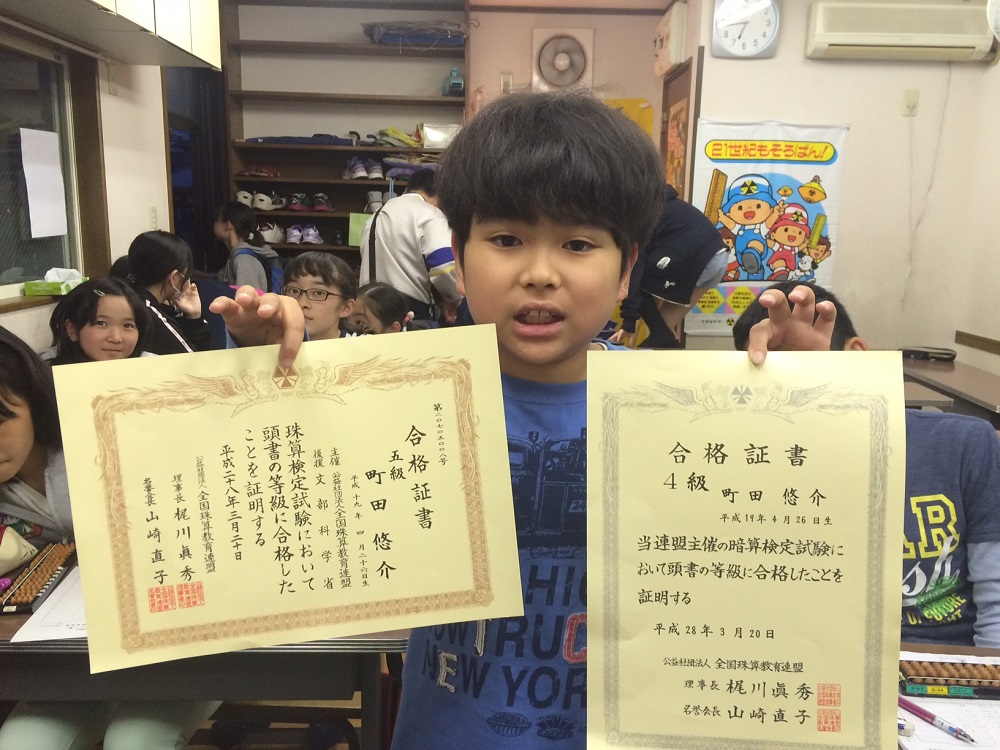 21世紀もそろばん!
第二〇七〇五〇〇八号
合格証書
五級 町田悠介
平成十九年 四月二十六日生
主催 公益社団法人全国珠算教育連盟
後援 文部科学省
珠算検定試験において
頭書の等級に合格した
ことを証明する
平成二十八年三月二十日
公益社団法人全国珠算教育連盟
理事長 梶川眞秀
名誉会長 山崎直子
合格証書
4級 町田 悠介
平成19年4月26日生
当連盟主催の暗算検定試験に
おいて頭書の等級に合格したことを
証明する
平成28年3月20日
公益社団法人 全国珠算教育連盟
理事長 梶川眞秀
名誉会長 山崎直子
TRUC
NEW YOR